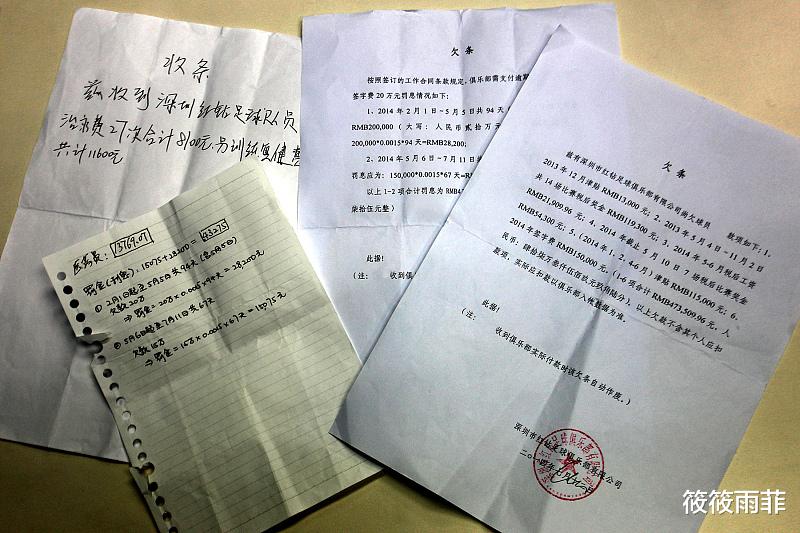 收条
兹收到深圳红钻足球队员
治疗费27次合计8100元.另训练
共计11600元
13769.01
罚金(利息):15075+28200=43275
① 2月1日起至5月5日共94天(含5月5日)
欠款20万
⇒罚金=20万×0.0015×94天=28,200元
② 5月6日起至7月11日共67天
欠款15万
⇒罚金=15万×0.0015×67天=15075元
欠 条
按照签订的工作合同条款规定,俱乐部需支付逾
签字费 20 万元罚息情况如下:
1、2014 年 2 月 1 日~5 月 5 日共 94 天
RMB200,000(大写:人民币贰拾万元
200,000*0.0015*94 天=RMB28,200;
2、2014 年 5 月 6 日~7 月 11 日共
罚息应为:150,000*0.0015*67 天=R
以上 1-2 项合计罚息为 RMB4
柒拾伍元整)
此据!
(注: 收到俱乐部
欠 条
兹有深圳市红钻足球俱乐部有限公司尚欠球员 款项如下:1、
2013 年 12 月津贴 RMB13,000 元;2、2013 年 5 月 4 日~11 月 2 日
共 14 场比赛税后奖金 RMB119,300 元;3、2014 年 5-6 月税后工资
RMB21,909.96 元;4、2014 年截止 5 月 10 日 7 场税后比赛奖金
RMB54,300 元;5、(2014 年 1、2、4-6 月)津贴 RMB115,000 元;6、
2014 年签字费 RMB150,000 元。(1-6 项合计 RMB473,509.96 元,人
民币:肆拾柒万叁仟伍佰玖元玖角陆分)。以上欠款不含某个人应扣
款项,实际应扣款以俱乐部入账数据为准。
此据!
(注: 收到俱乐部实际付款时该欠条自动作废。)
深圳市红钻足球俱乐部有限公司
筱筱雨菲